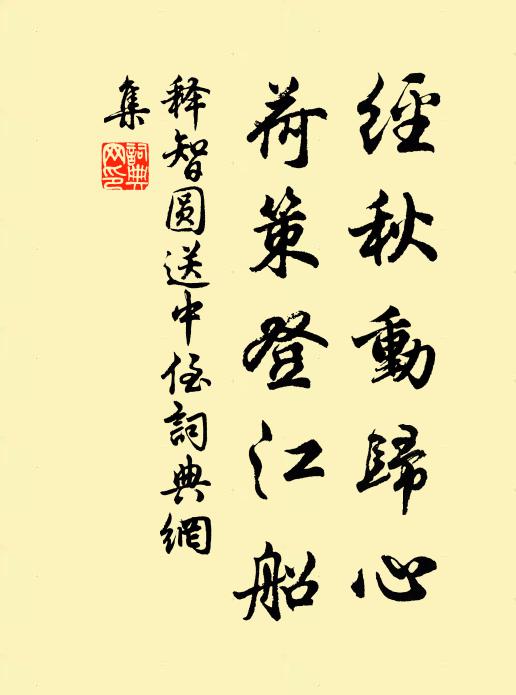 經秋動歸心
荷策登江船
释智圓送中侄詞典網
集
詞典
网印